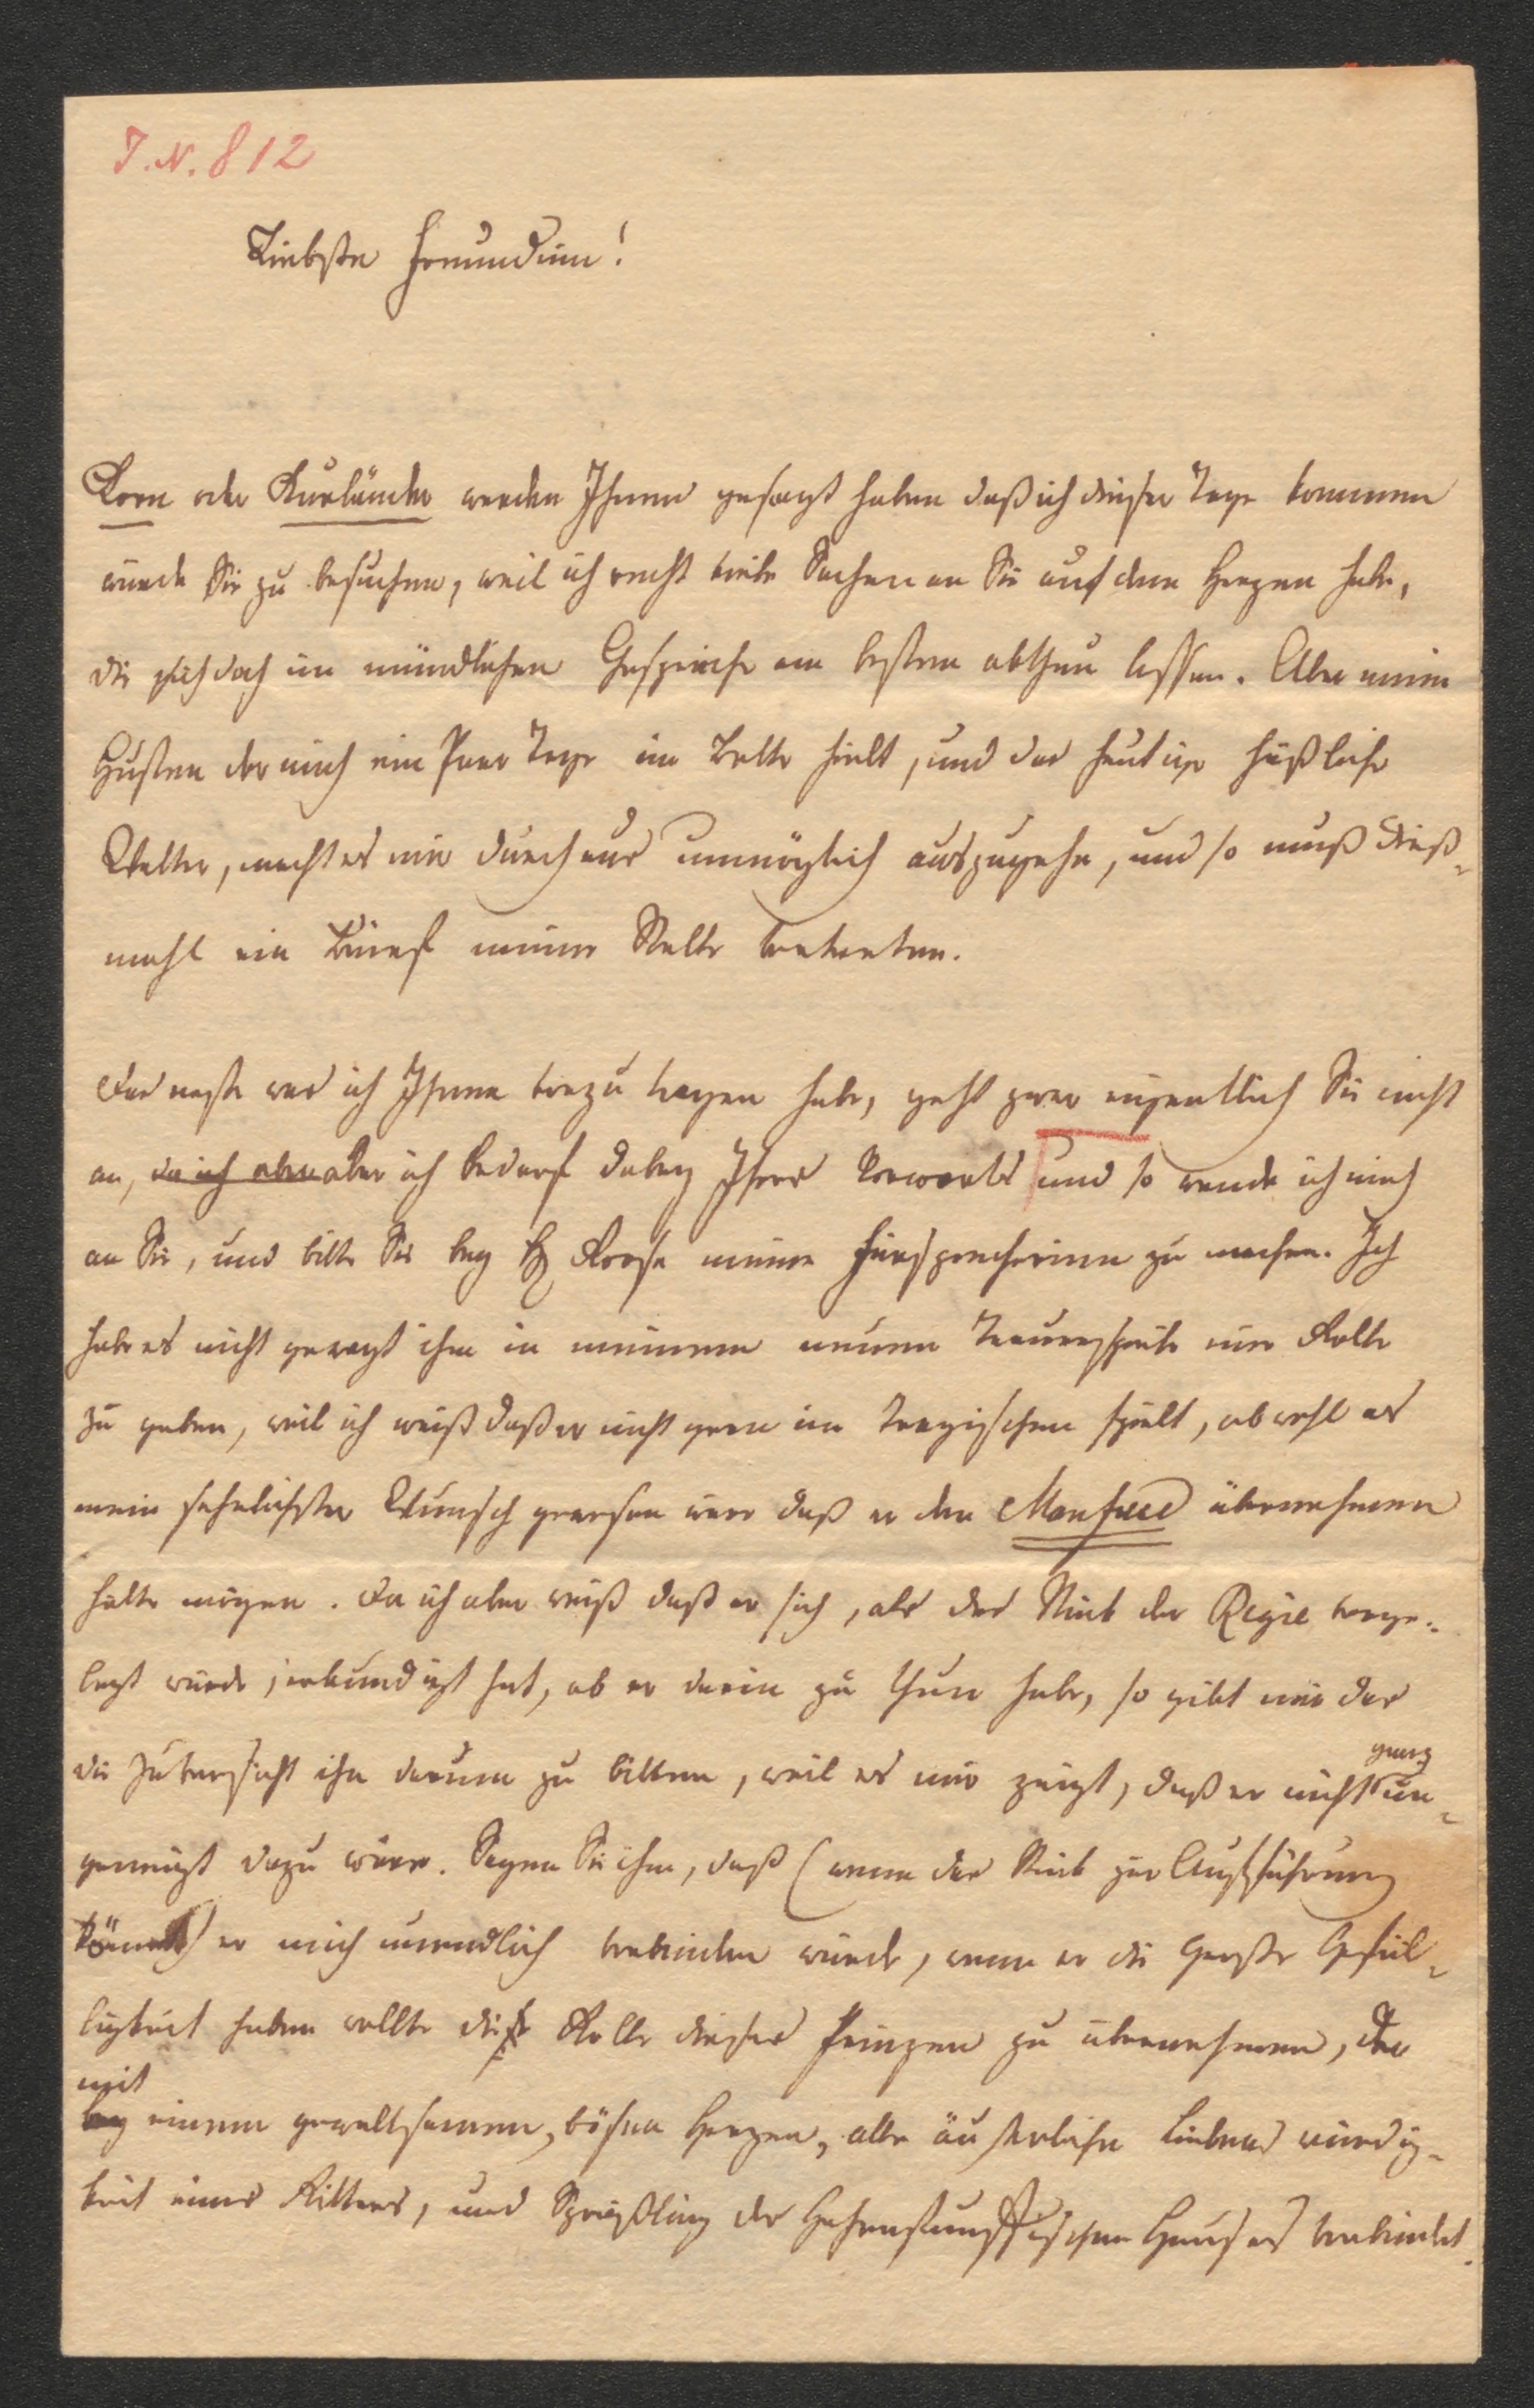 J. N. 812
Liebste Freundinn!
Korn oder Kurländer werden Ihnen gesagt haben daß ich dieser Tage kommen
würde Sie zu besuchen, weil ich recht viele Sachen an Sie auf dem Herzen habe,
die sich doch im mündlichen Gespräche am besten abthun lassen. Aber mein
Husten der mich ein Paar Tage im Bette hielt, und das heutige häßliche
Wetter, macht es mir durchaus unmöglich auszugehn, und so muß dieß-
mahl ein Brief meine Stelle vertreten.
Das erste was ich Ihnen vorzutragen habe, geht zwar eigentlich Sie nicht
an, da ich aber aber ich bedarf dabey Ihres Vorworts und so wende ich mich
an Sie, und bitte Sie bey H Koose meine Fürsprecherinn zu machen. Ich
habe es nicht gewagt ihm in meinem neuen Trauerspiele eine Rolle
zu geben, weil ich weiß daß er nicht gern im Tragischen spielt, obwohl es
mein sehnlichster Wunsch gewesen wäre daß er den Manfred übernehmen
hätte mögen. Da ich aber weiß daß er sich, als das Stück der Regie vorge-
legt wurde, erkundigt hat, ob er darin zu thun habe, so gibt mir das
die Zuversicht ihn darum zu bitten, weil es mir zeigt, daß er nicht ganz un-
geneigt dazu wäre. Sagen Sie ihm, daß (wenn das Stück zur Aufführung
kömmt) er mich unendlich verbinden würde, wenn er die große Gefäl-
ligkeit haben wollte die Rolle dieses Prinzen zu übernehmen, der
mit
bey einem gewaltsamen, bösen Herzen, alle äußerliche Liebenswürdig-
keit eines Ritters, und Sprößling des Hohenstauffischen Hauses verbindet.